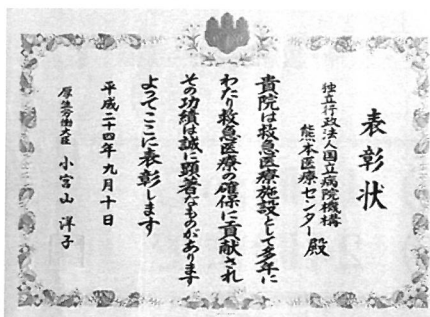 表彰状
独立行政法人国立病院機構
熊本医療センター殿
貴院は救急医療施設として多年に
わたり救急医療の確保に貢献され
その功績は誠に顕著なものがあります
よってここに表彰します
平成二十四年九月十日
厚生労働大臣 小宮山洋子